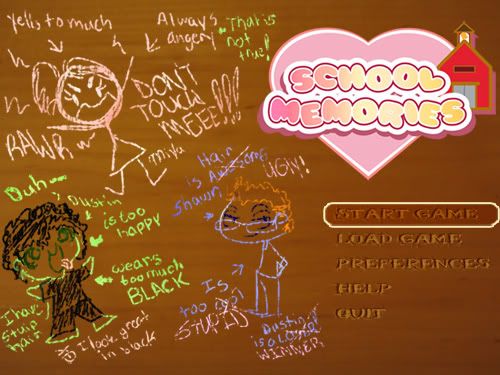 yells to much
Always
angery
That is
not
true!
h
h
h
DON'T
TOUCH
MEEE!!!
RAWR
Miya
SCHOOL
MEMORIES
Duh
Dustin
is too
happy
wears
too much
BLACK
I hate
stupid
hair
I look great
in black
Hair
is Awesome
UGLY!
Shawn
Is
too
STUPID
Dustin
is a Loser
WINNER
START GAME
LOAD GAME
PREFERENCES
HELP
QUIT